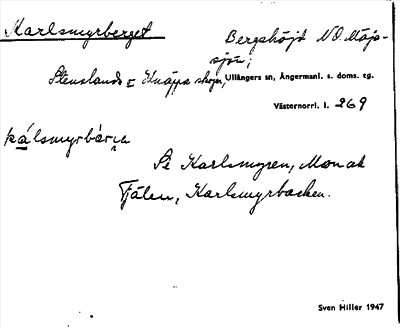 Karlsmyrberget Bergshöjd NO Mäja-
sjön;
Stenslands o Knäppa skogar, Ullångers sn, Ångermanl. s. doms. tg.
Västernorrl. l. 269
kálsmyrbär̥ɩ̣
Se Karlsmyren,
Fjälen, Karlsmyrbacken.
Sven Hiller 1947